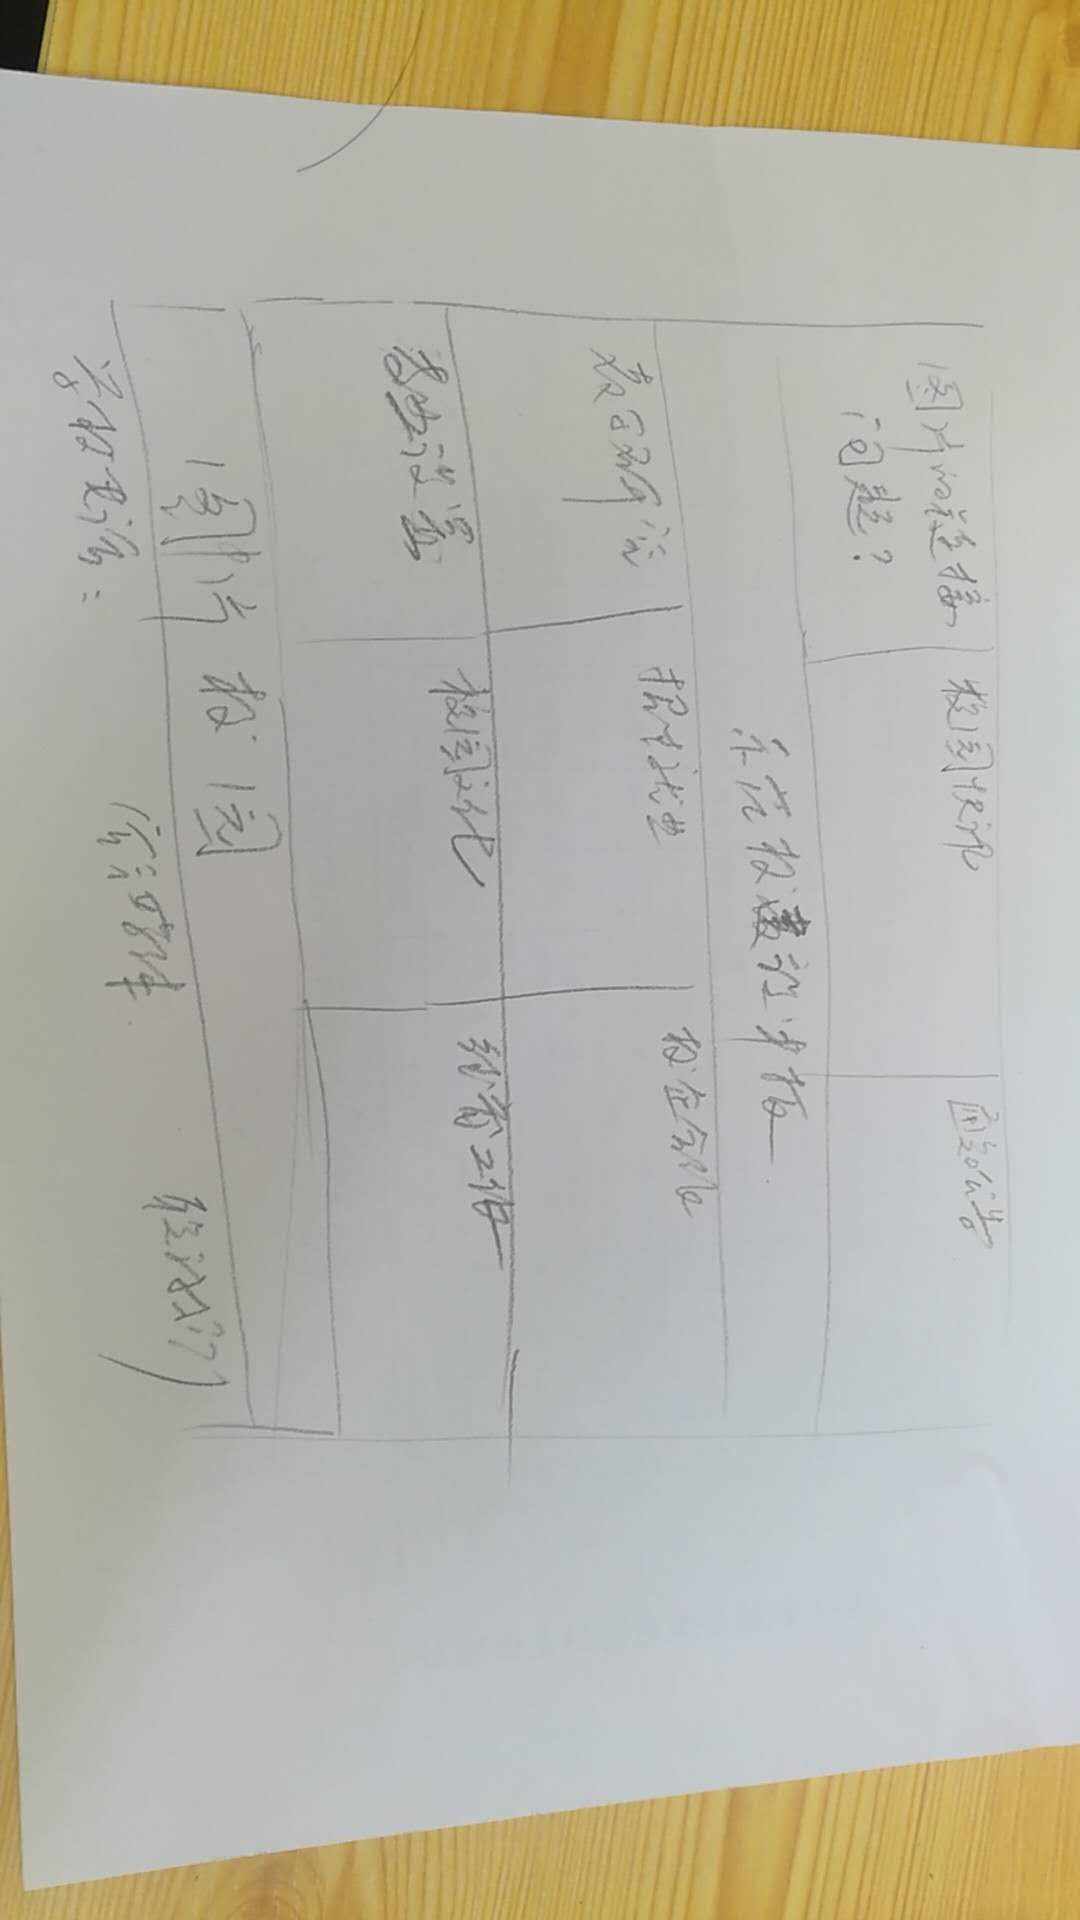 图片的链接
问题?
校园快讯
通知公告
示范校建设申报
教学研究
招生就业
校企合作
专业设置
校园文化
德育工作
图片校园
学校电话:
官方媒体
联系我们